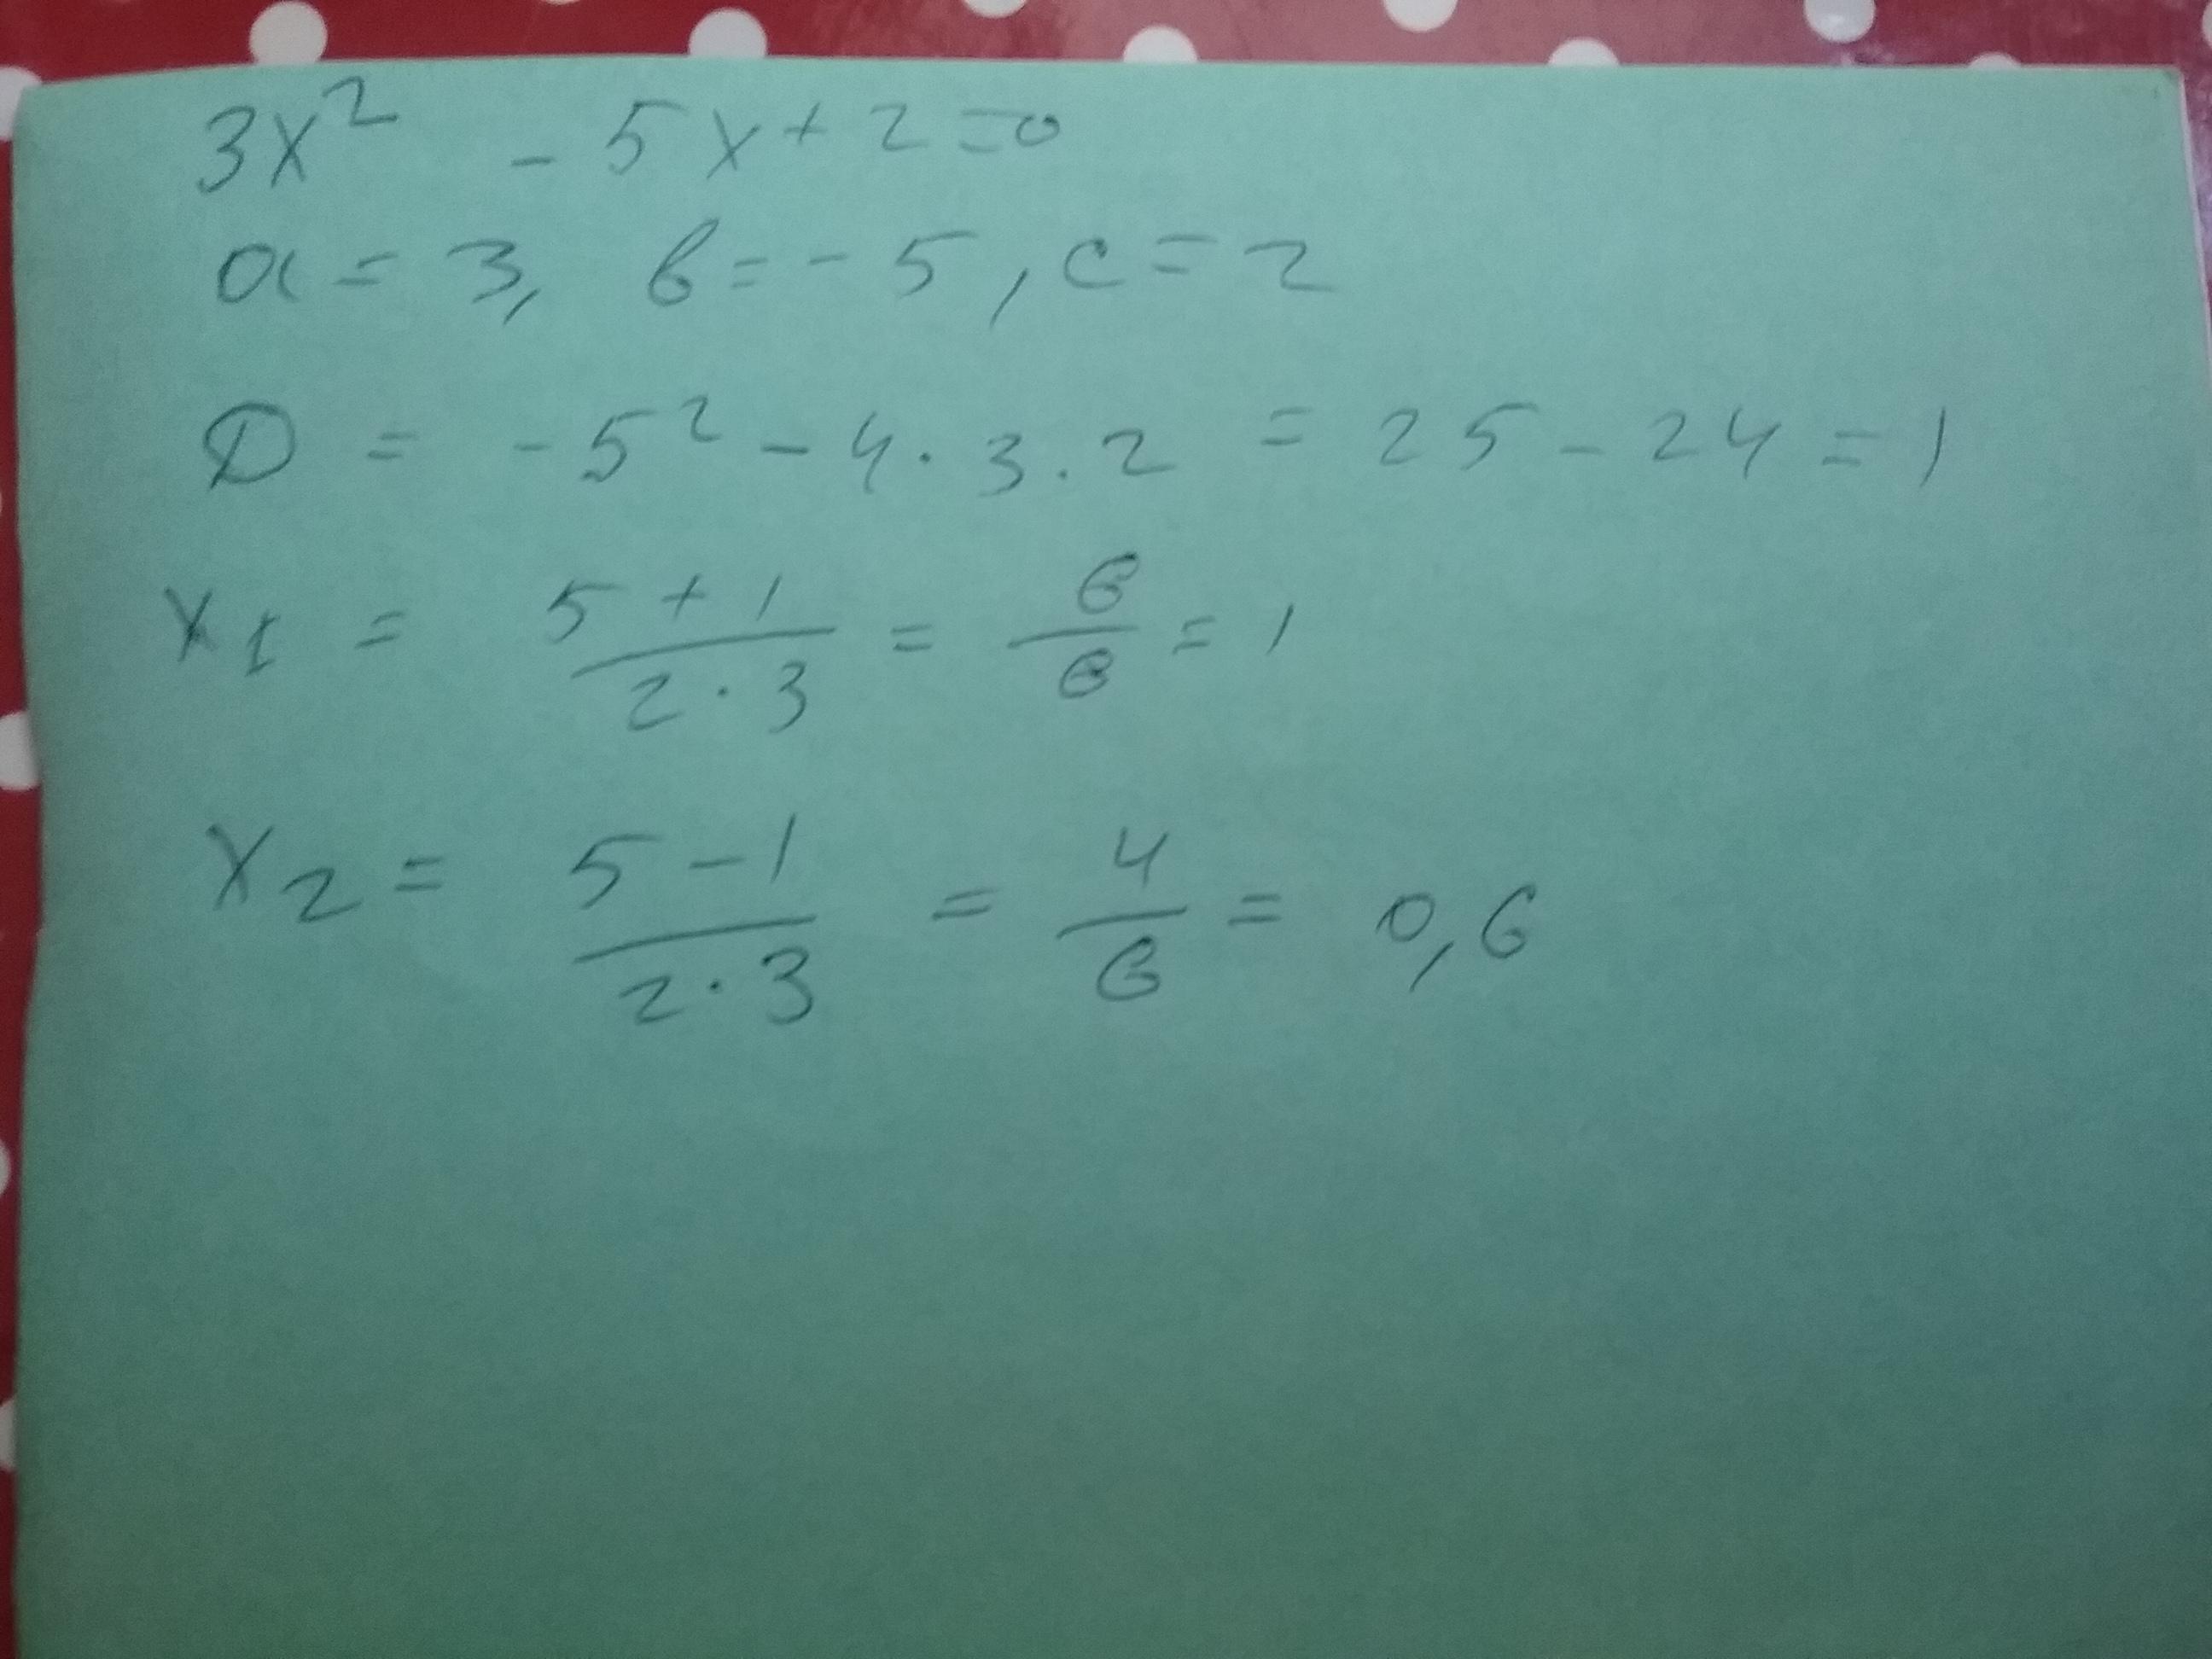 3x² - 5x + 2 = 0
a = 3, b = -5, c = 2
D = -5² - 4 · 3 · 2 = 25 - 24 = 1
x₁ = (5 + 1)/(2 · 3) = 6/6 = 1
x₂ = (5 - 1)/(2 · 3) = 4/6 = 0,6